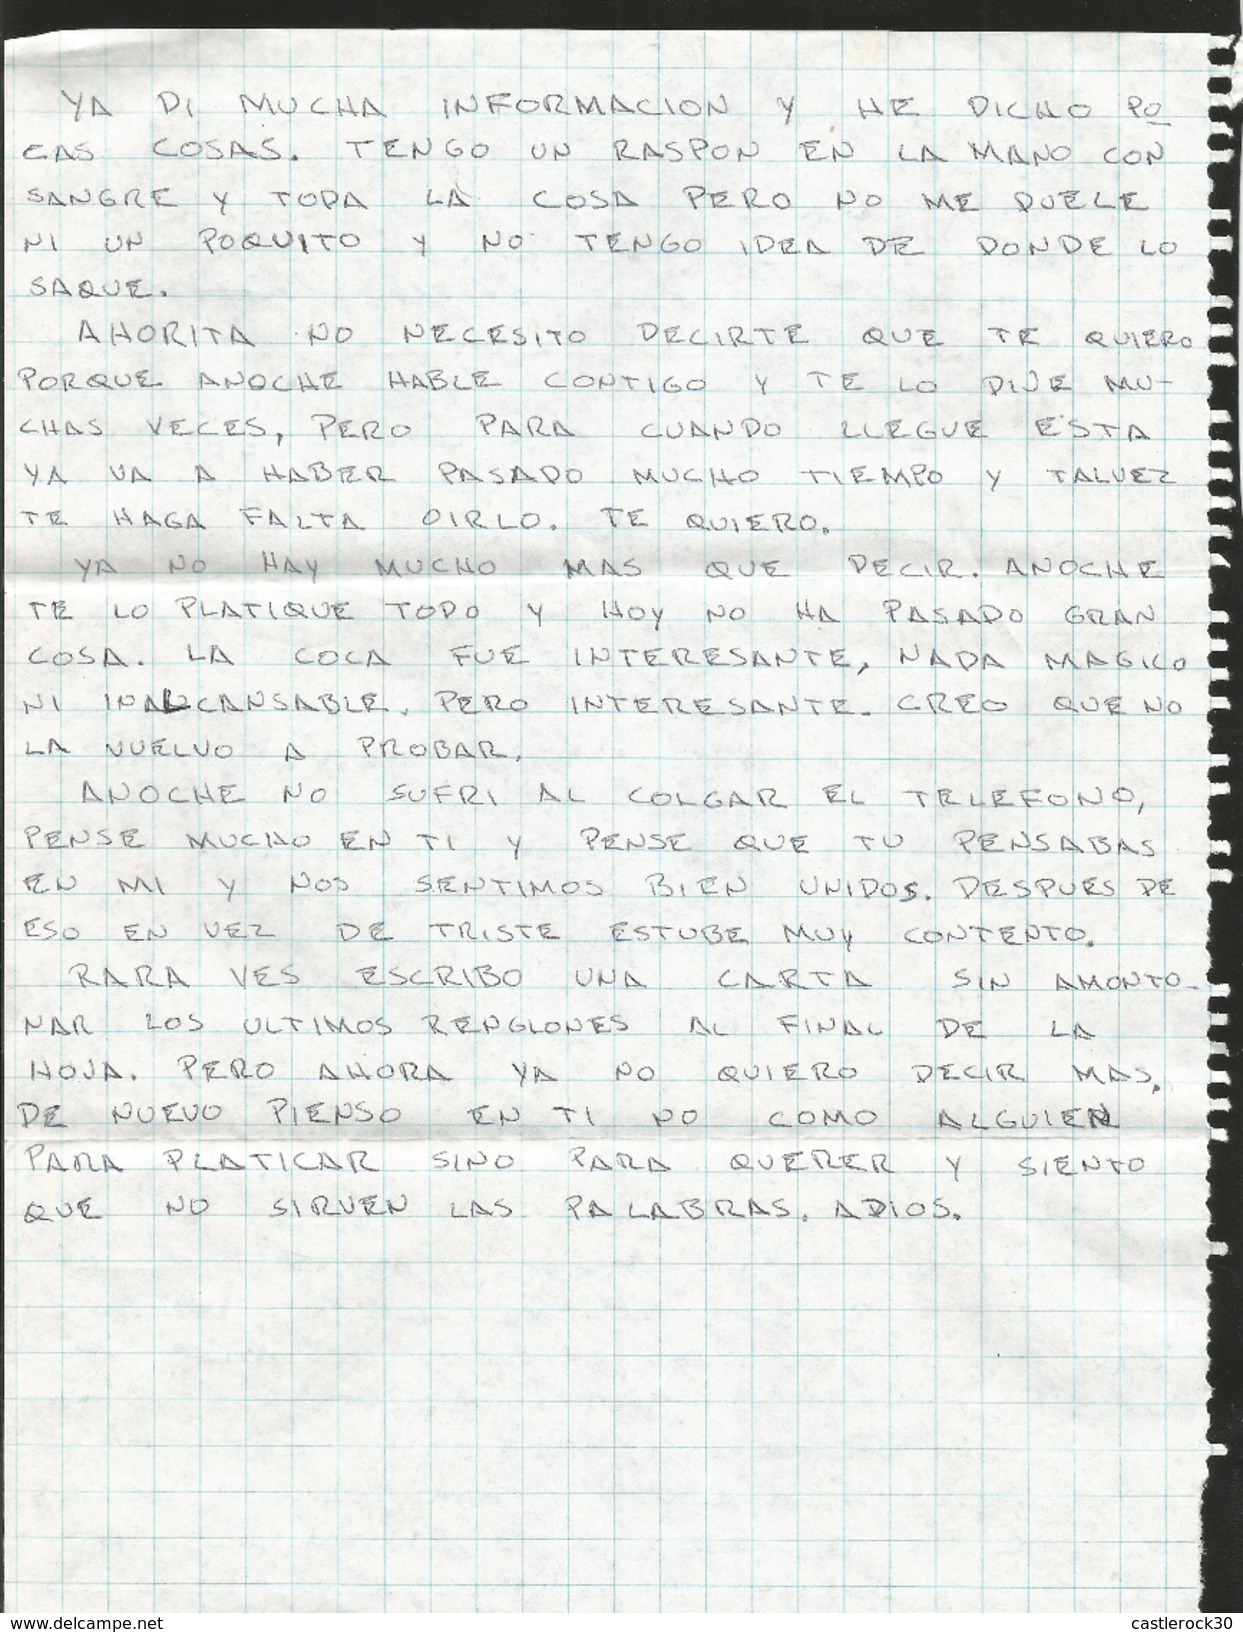 YA DI MUCHA INFORMACION Y HE DICHO PO
CAS COSAS. TENGO UN RASPON EN LA MANO CON
SANGRE Y TODA LA COSA PERO NO ME DUELE
NI UN POQUITO Y NO TENGO IDEA DE DONDE LO
SAQUE.
AHORITA NO NECESITO DECIRTE QUE TE QUIERO
PORQUE ANOCHE HABLE CONTIGO Y TE LO DIJE MU-
CHAS VECES, PERO PARA CUANDO LLEGUE ESTA
YA VA A HABER PASADO MUCHO TIEMPO Y TALVEZ
TE HAGA FALTA OIRLO. TE QUIERO.
YA NO HAY MUCHO MAS QUE DECIR. ANOCHE
TE LO PLATIQUE TODO Y HOY NO HA PASADO GRAN
COSA. LA COCA FUE INTERESANTE, NADA MAGICO
NI INALCANSABLE, PERO INTERESANTE. CREO QUE NO
LA VUELVO A PROBAR.
ANOCHE NO SUFRI AL COLGAR EL TELEFONO,
PENSE MUCHO EN TI Y PENSE QUE TU PENSABAS
EN MI Y NOS SENTIMOS BIEN UNIDOS. DESPUES DE
ESO EN VEZ DE TRISTE ESTUBE MUY CONTENTO.
RARA VES ESCRIBO UNA CARTA SIN AMONTO-
NAR LOS ULTIMOS RENGLONES AL FINAL DE LA
HOJA. PERO AHORA YA NO QUIERO DECIR MAS,
DE NUEVO PIENSO EN TI NO COMO ALGUIEN
PARA PLATICAR SINO PARA QUERER Y SIENTO
QUE NO SIRVEN LAS PALABRAS. ADIOS.
www.delcampe.net
castlerock30